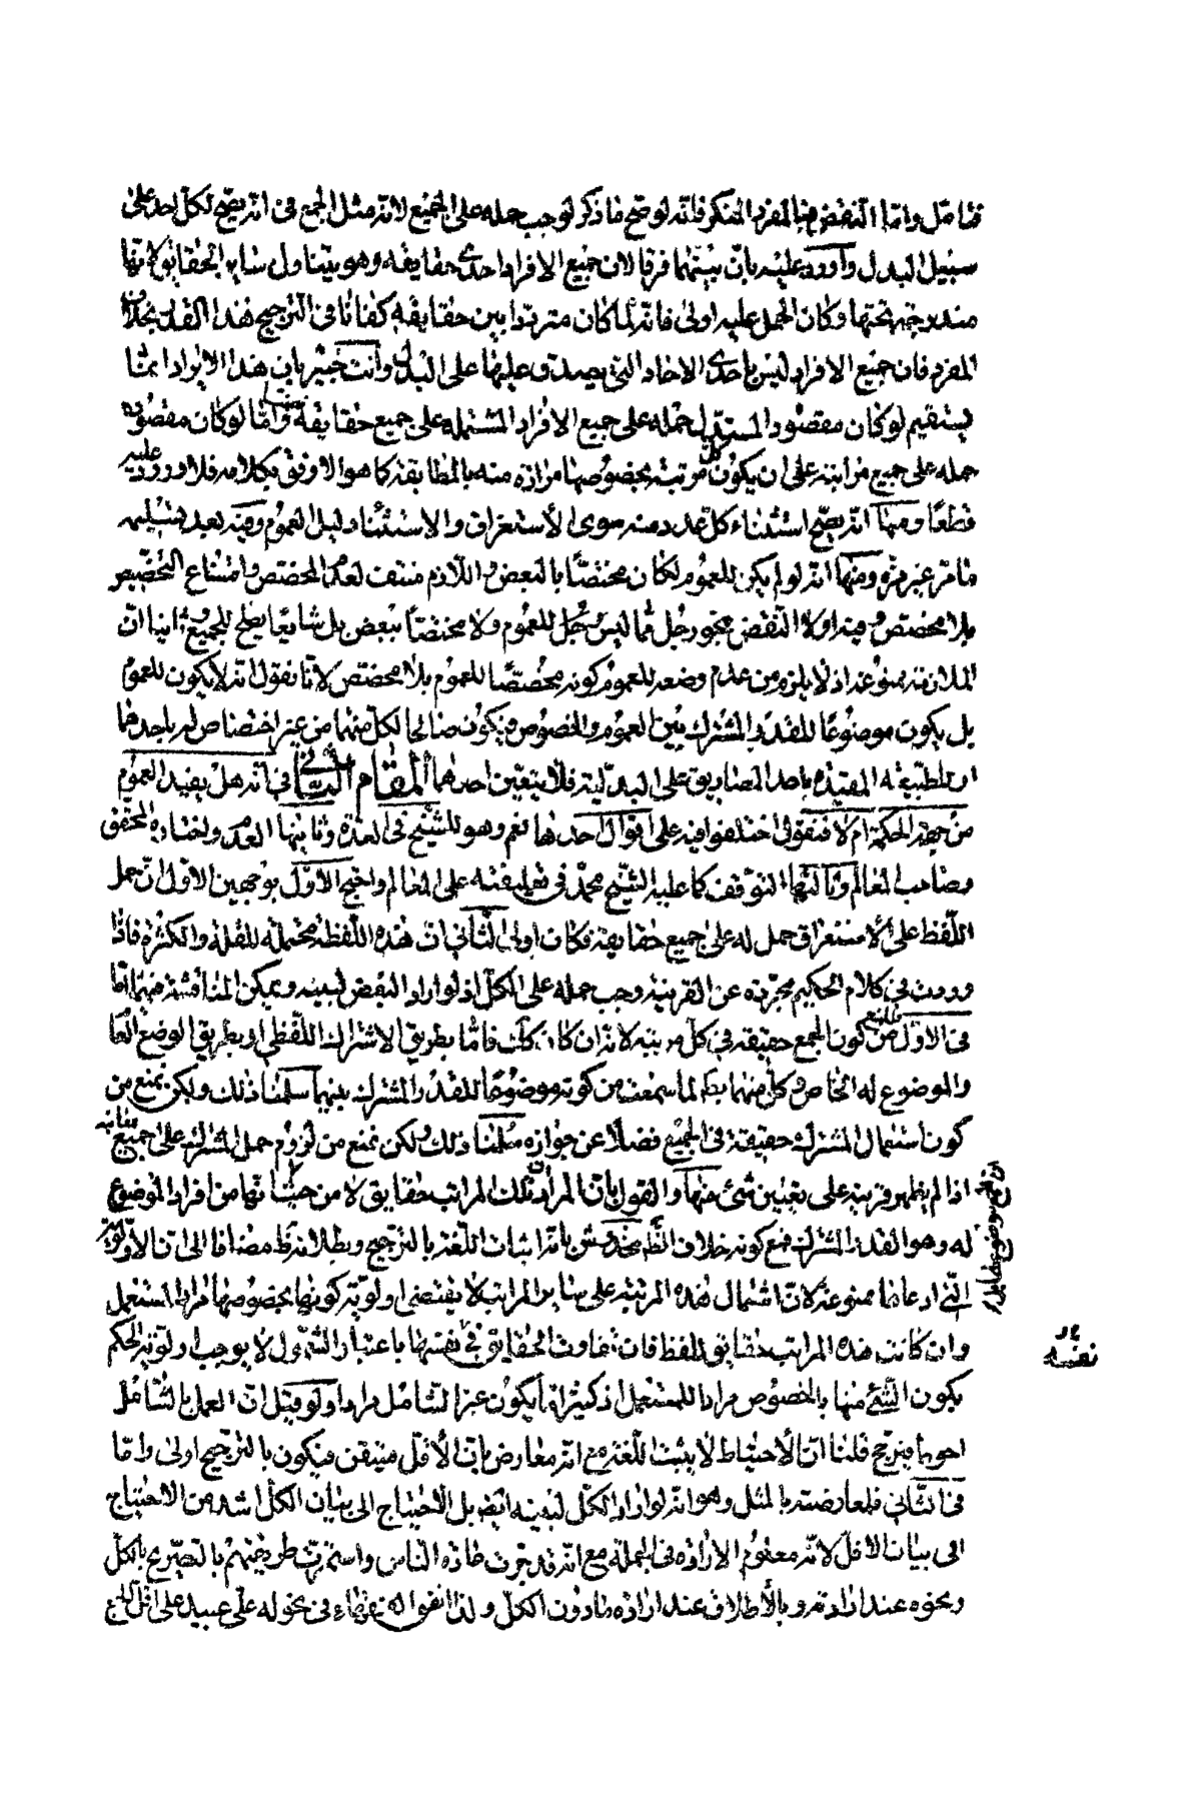 فتامّل وامّا النقض فبالمفرد المنكر فانّه لو صحّ ما ذكر لوجب حمله على الجميع لانّه مثل الجمع فى انّه يصحّ لكلّ احد على
سبيل البدل واورد عليه بانّ بينهما فرقا لان جميع الافراد احدى حقايقه وهو يتناول ساير الحقايق كانّها
مندرجة تحتها وكان الحمل عليه اولى فانّه لمّا كان متردّدا بين حقايقه كفانا فى الترجيح هذا القدر بخلاف
المفرد فان جميع الافراد ليس باحدى الاحاد التى يصدق عليها على البدل وانت خبير بان هذا الايراد انّما
يستقيم لو كان مقصود المستدل حمله على جميع الافراد المشتمله على جميع حقايقه وامّا لو كان مقصوده
حمله على جميع مراتبه على ان يكون كل مرتبة بخصوصها مرادة منه بالمطابقة كما هو الاوفق بكلامه فلا ورود عليه
قطعًا ومنها انّه يصحّ استثناء كلّ عدد منه سوى الاستغراق والاستثناء دليل العموم وفيه بعد تسليمه
ما مرّ غير مرّة ومنها انّه لو لم يكن للعموم لكان مختصًّا بالبعض واللّازم منتف لعدم المخصّص وامتناع التخصيص
بلا مخصّص وفيه اولا النقض بنحو رجل ممّا ليس للعموم ولا مختصّاً ببعض بل شايعا يصلح للجميع وثانيا انّ
الملازمة ممنوعة اذ لا يلزم من عدم وضعه للعموم كونه مخصّصًا للعموم بلا مخصّص لانّا نقول انّه لا يكون للعموم
بل يكون موضوعًا للقدر المشترك بين العموم والخصوص فيكون صالحا لكلّ منهما من غير اختصاص له باحدهما
او للطبيعة المقيّدة باحد المصاديق على البدليّة فلا يتعيّن احدهما المقام الثانى فى انّه هل يفيد العموم
من جهة الحكمة ام لا فنقول اختلفوا فيه على اقوال احدها نعم وهو للشيخ فى العدة وثانيها العدم واختاره المحقق
وصاحب المعالم وثالثها التوقف كما عليه الشيخ محمّد فى تعليقته على المعالم واحتج الاوّل بوجهين الاوّل انّ حمل
اللّفظ على الاستغراق حمل له على جميع حقايقه فكان اولى الثّانى انّ هذه اللّفظة محتملة للقلّة والكثرة فاذا
وردت فى كلام الحكيم مجرّدة عن القرينة وجب حمله على الكلّ اذ لو اراد البعض لبينه ويمكن المناقشة فيهما امّا
فى الاوّل فلمنع من كون الجمع حقيقة فى كلّ مرتبة لانّه ان كان كك فامّا بطريق الاشتراك اللّفظى او بطريق الوضع العام
والموضوع له الخاص وكلّ منهما بط لما سمعت من كونه موضوعًا للقدر المشترك بينهما سلمنا ذلك ولكن نمنع من
كون استعمال المشترك حقيقة فى الجميع فضلاً عن جوازه سلّمنا ذلك ولكن نمنع من لزوم حمل المشترك على جميع معانيه
اذا لم يظهر قرينة على تعيين شئ منها والقول بان المراد انّ تلك المراتب حقايق لا من حيث انها من افراد الموضوع
له وهو القدر المشترك فمع كونه خلاف الظّ مخدوش بانّه اثبات اللّغة بالترجيح وبطلانه ظ مضافا الى ان الاولويّة
التى ادعاها ممنوعة لانّ اشتمال هذه المرتبة على ساير المراتب لا يقتضى اولويّة كونها بخصوصها مراد المستعمل
وان كانت هذه المراتب حقايق للفظ فان تفاوت الحقايق فى نفسها باعتبار الشمول لا يوجب اولويّة الحكم
بكون الشئ منها بالخصوص مرادا للمستعمل اذ كثيرًا ما يكون غير الشّامل مرادا ولو قيل انّ العمل بالشّامل
احوط فيرجح قلنا انّ الاحتياط لا يثبت اللّغة مع انّه معارض بانّ الاقل متيقن فيكون بالترجيح اولى وامّا
فى الثّانى فلمعارضته بالمثل وهو انّه لو اراد الكلّ لبينه ايض بل الاحتياج الى بيان الكلّ اشد من الاحتياج
الى بيان الاقلّ لانّه معلوم الارادة فى الجملة مع انّه قد جرت عادة النّاس واستمرّت طريقتهم بالتصريح بالكلّ
ونحوه عند ارادته وبالاطلاق عند ارادة ما دون الكلّ ولذا اتفق الفقهاء فى نحو له علىّ عبيد على اقل الجمع